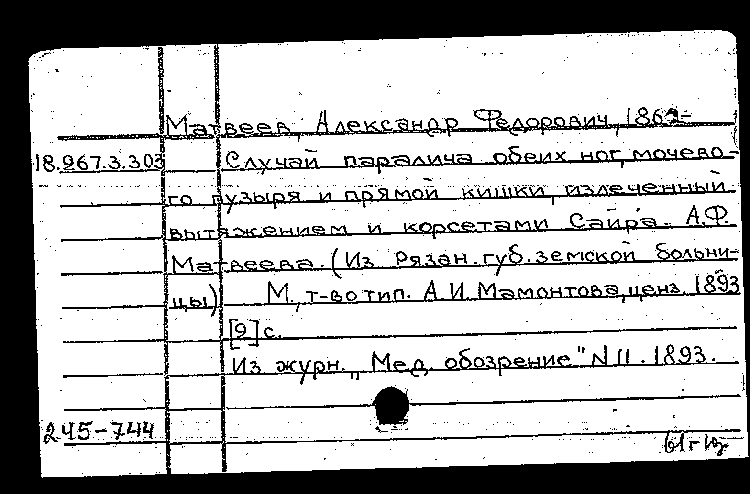 Матвеев, Александр Федорович, 1862-
18.967.3.303 Случай паралича обеих ног, мочево-
го пузыря и прямой кишки, излеченный
вытяжением и корсетами Сайра. А.Ф.
Матвеева. (Из Рязан. губ. земской больни-
цы) М., т-во тип. А.И. Мамонтова, ценз. 1893
[9] с.
Из журн. "Мед. обозрение" N 11. 1893.
245-744